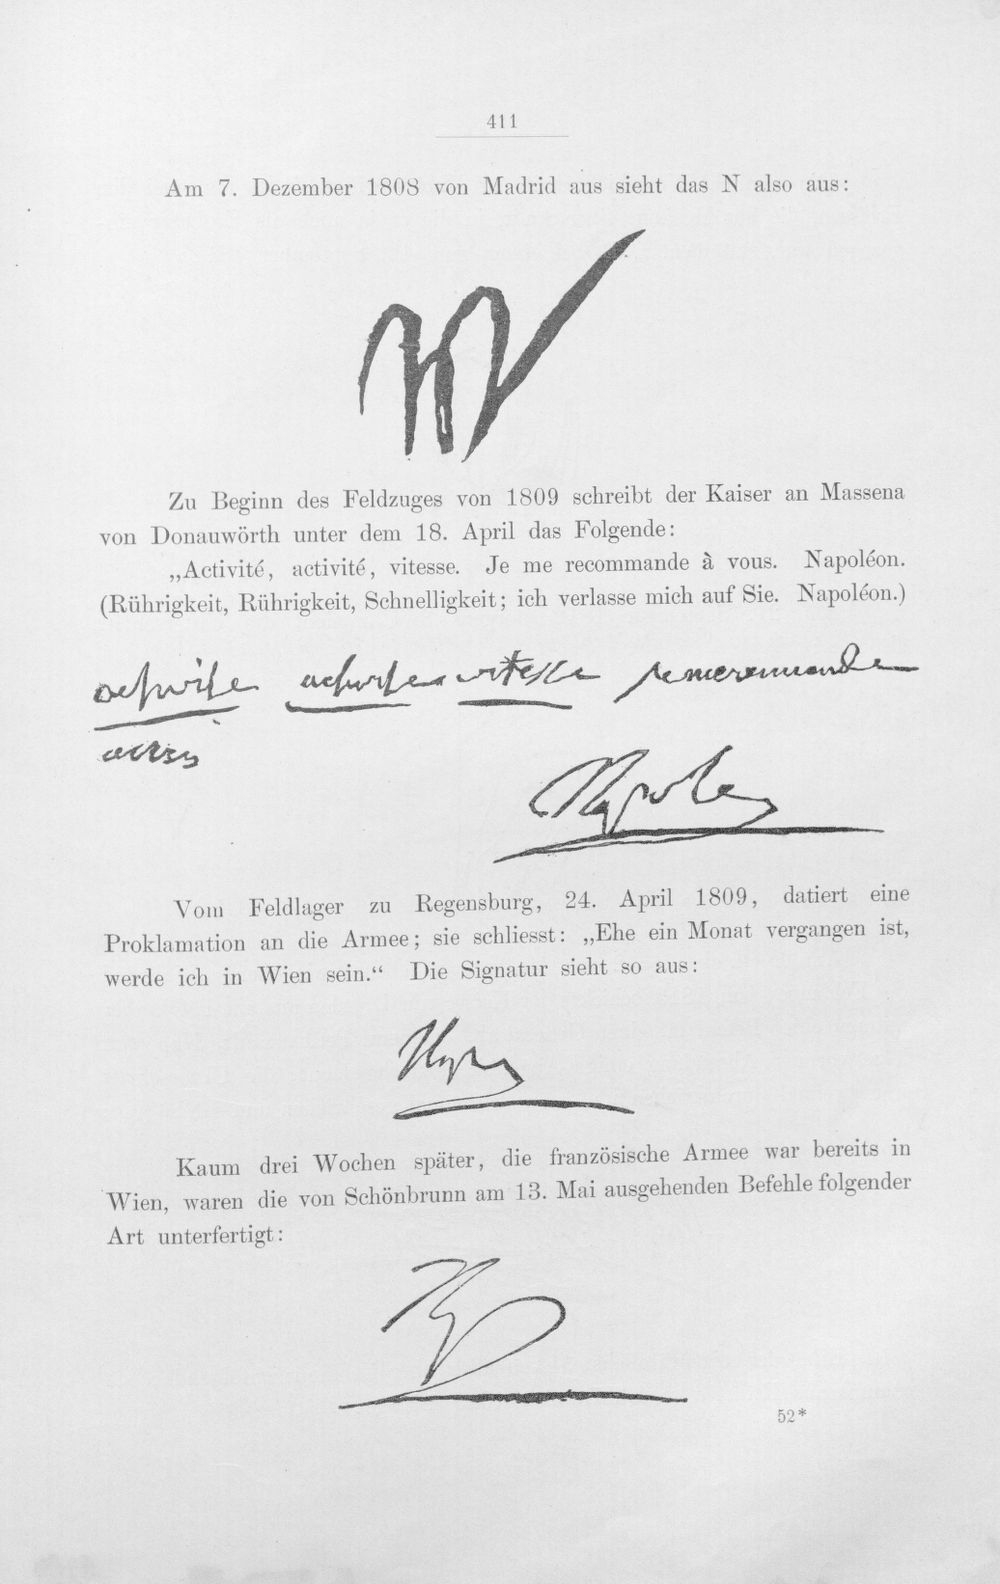 411
Am 7. Dezember 1808 von Madrid aus sieht das N also aus:
Zu Beginn des Feldzuges von 1809 schreibt der Kaiser an Massena
von Donauwörth unter dem 18. April das Folgende:
„Activité, activité, vitesse. Je me recommande à vous. Napoléon.
(Rührigkeit, Rührigkeit, Schnelligkeit; ich verlasse mich auf Sie. Napoléon.)
activite activite vitesse
Napole
Vom Feldlager zu Regensburg, 24. April 1809, datiert eine
Proklamation an die Armee; sie schliesst: „Ehe ein Monat vergangen ist,
werde ich in Wien sein.“ Die Signatur sieht so aus:
Kaum drei Wochen später, die französische Armee war bereits in
Wien, waren die von Schönbrunn am 13. Mai ausgehenden Befehle folgender
Art unterfertigt:
52*